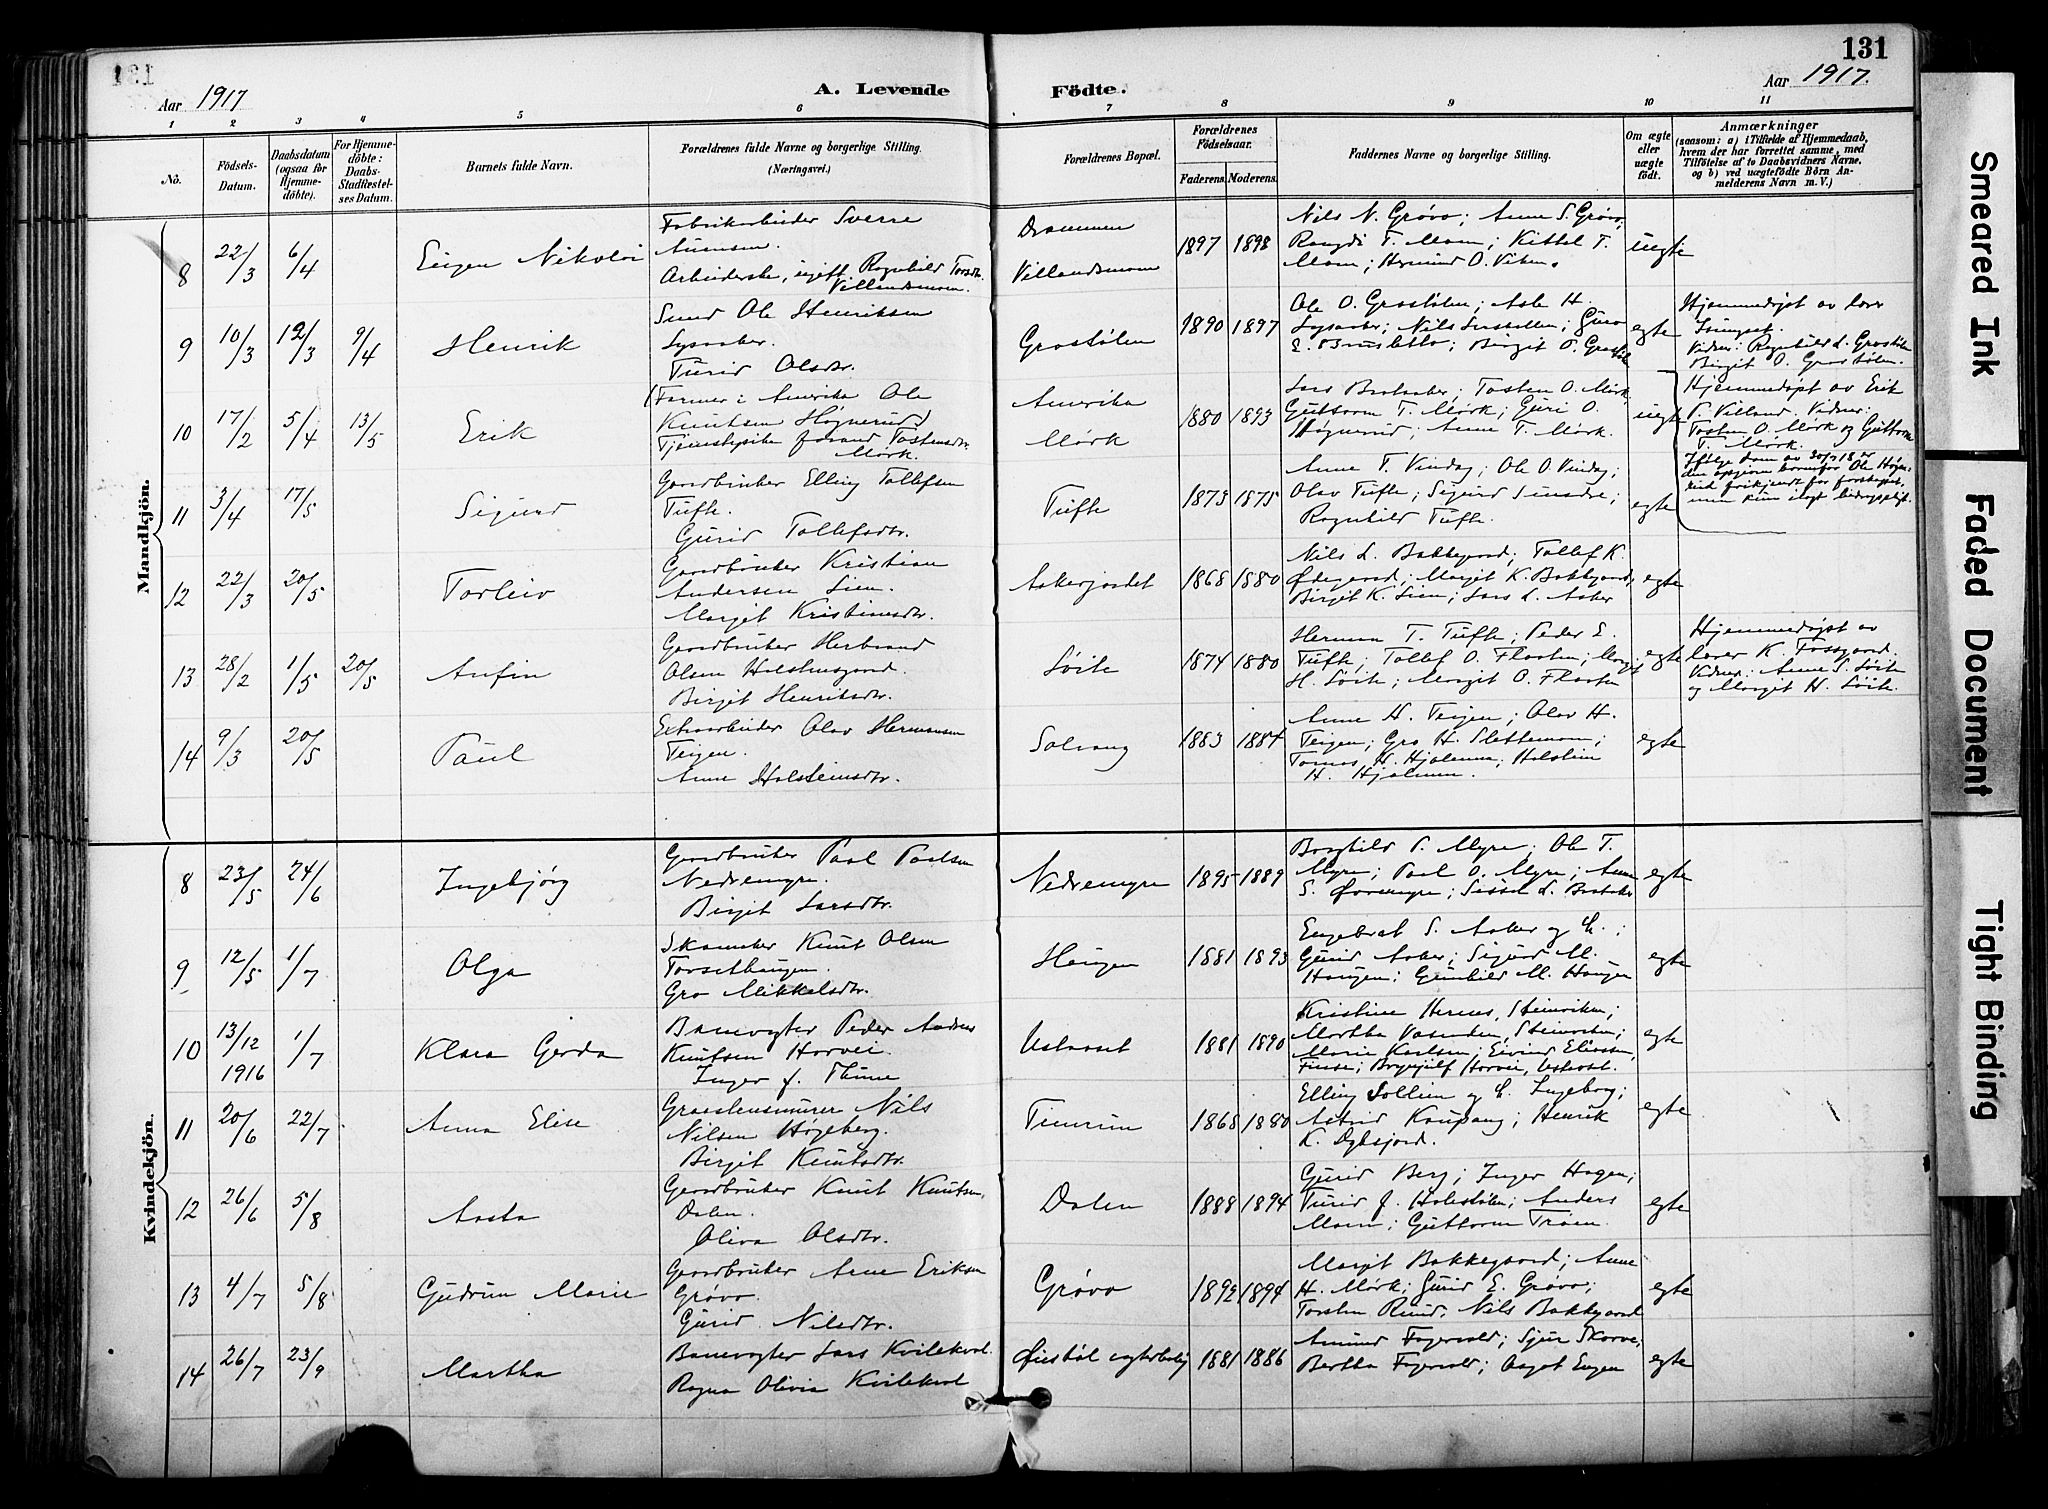 131
131
Aar 1917
A. Levende
Födte.
Aar 1917.
1 2 3 4 5 6 7 8 9 10 11
No.
Födsels-
Datum.
Daabsdatum
(ogsaa for
Hjemme-
döbte).
For Hjemme-
döbte:
Daabs-
Stadfæstel-
ses Datum.
Barnets fulde Navn.
Forældrenes fulde Navne og borgerlige Stilling.
(Næringsvei.)
Forældrenes Bopæl.
Forældrenes
Födselsaar.
Faderens. Moderens.
Faddernes Navne og borgerlige Stilling.
Om ægte
eller
uægte
födt.
Anmærkninger
(saasom: a) i Tilfælde af Hjemmedaab,
hvem der har forrettet samme, med
Tilföielse af to Daabsvidners Navne,
og b) ved uægtefödte Börn An-
melderens Navn m. V.)
Mandkjön.
8 22/3 6/4 Eugen Nikolai
Fabrikarbeider Sverre
Arbeiderske, ugift Ragnhild Torsdtr.
Villandsmoen.
Drammen
Villandsmoen
1897 1898
Nils N. Grøvo; Anne S. Grøvo;
Rangdi T. Moen; Kittel T.
Moen; Hermund O. Viken.
uegte
9 10/3 12/3 9/4 Henrik
Smed Ole Henriksen
Sysaaker.
Turid Olsdtr.
Grostølen
1890 1897
Ole O. Grostølen; Asle H.
Sysaaker; Nils; Guro
E. Brusletto; Birgit O. Grostøl
egte
Hjemmedøpt av lærer
Vidner: Ragnhild L. Grostølen
Birgit O. Grostølen.
10 17/2 5/4 13/5 Erik
(Farmer i Amerika Ole
Knutsen Høgnerud)
Tjenestepike Torstensdtr.
Mørk.
Amerika
Mørk
1880 1893
Lars Brataaker; Tosten O. Mørk,
Guttorm T. Mørk; Guri O.
Høgnerud; Anne T. Mørk.
uegte
Hjemmedøpt av Erik
P. Villand. Vidner:
Tosten O. Mørk og Guttorm
T. Mørk.
Ifølge dom av 18 er
den opgivne barnefar Ole Høgne-
rud frikjendt for farskapet,
men kun ilagt bidragsplikt.
11 3/4 17/5 Sigurd
Gaardbruker Elling Tollefsen
Tufte.
Gurid Tollefsdtr.
Tufte
1873 1875
Anne T. Vindag; Ole O. Vindag;
Olav Tufte; Sigurd;
Ragnhild Tufte.
egte
12 22/3 20/5 Torleiv
Gaardbruker Kristian
Andersen Lien.
Margit Kristiansdtr.
Aakerjordet
1868 1880
Nils L. Bakkegaard; Tollef K.
Ødegaard; Margit K. Bakkgaard;
Birgit K. Lien; Lars L. Aaker
egte
13 28/2 1/5 20/5 Anfin
Gaardbruker Herbrand
Olsen Holstensgaard.
Birgit Henriksdtr.
Søite
1874 1880
Herman T. Tufte; Peder E.
Tufte; Tollef O. Flaaten; Margit
H. Søite; Margit O. Flaaten
egte
Hjemmedøpt av
lærer K. Fossgaard.
Vidner: Anne S. Søite
og Margit H. Søite.
14 9/3 20/5 Paul
Extraarbeider Olav Hermansen
Teigen.
Anne Holsteinsdtr.
Solvang
1883 1884
Anne H. Teigen; Olav H.
Teigen; Gro H. Slettemoen;
Tomas H. Hjolmen; Holstein
H. Hjolmen.
egte
Kvindekjön.
8 23/5 24/6 Ingebjørg
Gaardbruker Paal Paalsen
Nedremyre.
Birgit Larsdtr.
Nedremyre
1895 1889
Borghild P. Myre; Ole T.
Myre; Paal O. Myre; Anne
S. Øvremyre; Sissel L. Brataaker
egte
9 12/5 1/7 Olga
Skomaker Knut Olsen
Torsethaugen.
Gro Mikkelsdtr.
Haugen
1881 1893
Engebret S. Aaker og H.;
Gunid Aaker; Sigurd M.
Haugen; Gunhild M. Haugen
egte
10 13/12 1916 1/7 Klara Gerda
Banevogter Peder Andreas
Knutsen Horvei.
Inger f. Thune
Ustaoset
1881 1890
Kristine Hernes, Steinviken;
Martha Vasenden, Steinviken;
Marie Karlsen; Eivind Eliassen,
Finse; Brynjulf Horvei, Ustaoset.
egte
11 20/6 22/7 Anna Elise
Graastensmurer Nils
Nilsen Høgeberg.
Birgit Knutsdtr.
1868 1880
Elling Sollien og H. Ingeborg;
Astrid Kaupang; Henrik
K. Dyksjord.
egte
12 26/6 5/8 Aasta
Gaardbruker Knut Knutsen
Dalen.
Oliva Olsdtr.
Dalen
1888 1894
Gurid Berg; Inger Hagen;
Turid J. Holestølen; Anders
Moen; Guttorm Trøen.
egte
13 4/7 5/8 Gudrun Marie
Gaardbruker Arne Eriksen
Grøvo.
Gurid Nilsdtr.
Grøvo
1892 1894
Margit Bakkegaard; Anne
H. Mørk; Gurid E. Grøvo;
Torsten Ruud, Nils Bakkgaard
egte
14 26/7 23/9 Martha
Banevogter Lars Kvilekval.
Ragna Olivia Kvilekval
Øiestøl vogterbolig
1881 1886
Amund Fagervold; Sjur Skorve,
Bertha Fagervold; Aagot Engen
egte
Smeared Ink
Faded Document
Tight Binding